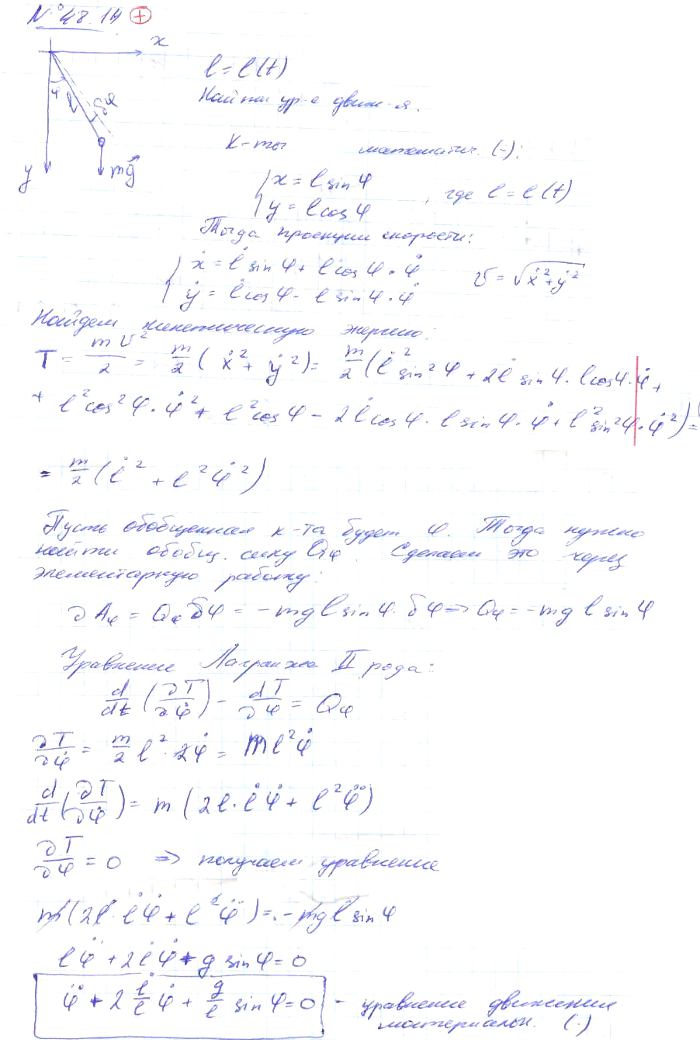 № 48.14 +
x
φ
l
δφ
y
mg⃗
l = l(t)
Найти ур-е движ-я.
К-ты математич. (·):
{ x = l sin φ
{ y = l cos φ , где l = l(t)
Тогда проекции скорости:
{ ẋ = l̇ sin φ + l cos φ · φ̇
{ ẏ = l̇ cos φ - l sin φ · φ̇ v = √(ẋ² + ẏ²)
Найдем кинетическую энергию:
T = mv²/2 = m/2 (ẋ² + ẏ²) = m/2 (l̇² sin² φ + 2l̇ sin φ · l cos φ · φ̇ +
+ l² cos² φ · φ̇² + l̇² cos φ - 2l̇ cos φ · l sin φ · φ̇ + l² sin² φ · φ̇²) =
= m/2 (l̇² + l² φ̇²)
Пусть обобщенная к-та будет φ. Тогда нужно
найти обобщ. силу Qφ. Сделаем это через
элементарную работу:
∂Aφ = Qφ δφ = -mg l sin φ · δφ => Qφ = -mg l sin φ
Уравнение Лагранжа II рода:
d/dt (∂T/∂φ̇) - dT/∂φ = Qφ
∂T/∂φ̇ = m/2 l² · 2φ̇ = ml² φ̇
d/dt (∂T/∂φ̇) = m (2l · l̇ φ̇ + l² φ̈)
∂T/∂φ = 0 => получаем уравнение
m(2l · l̇ φ̇ + l² φ̈) = -mg l sin φ
l φ̈ + 2l̇ φ̇ + g sin φ = 0
φ̈ + 2 l̇/l φ̇ + g/l sin φ = 0 - уравнение движения
материальн. (·)